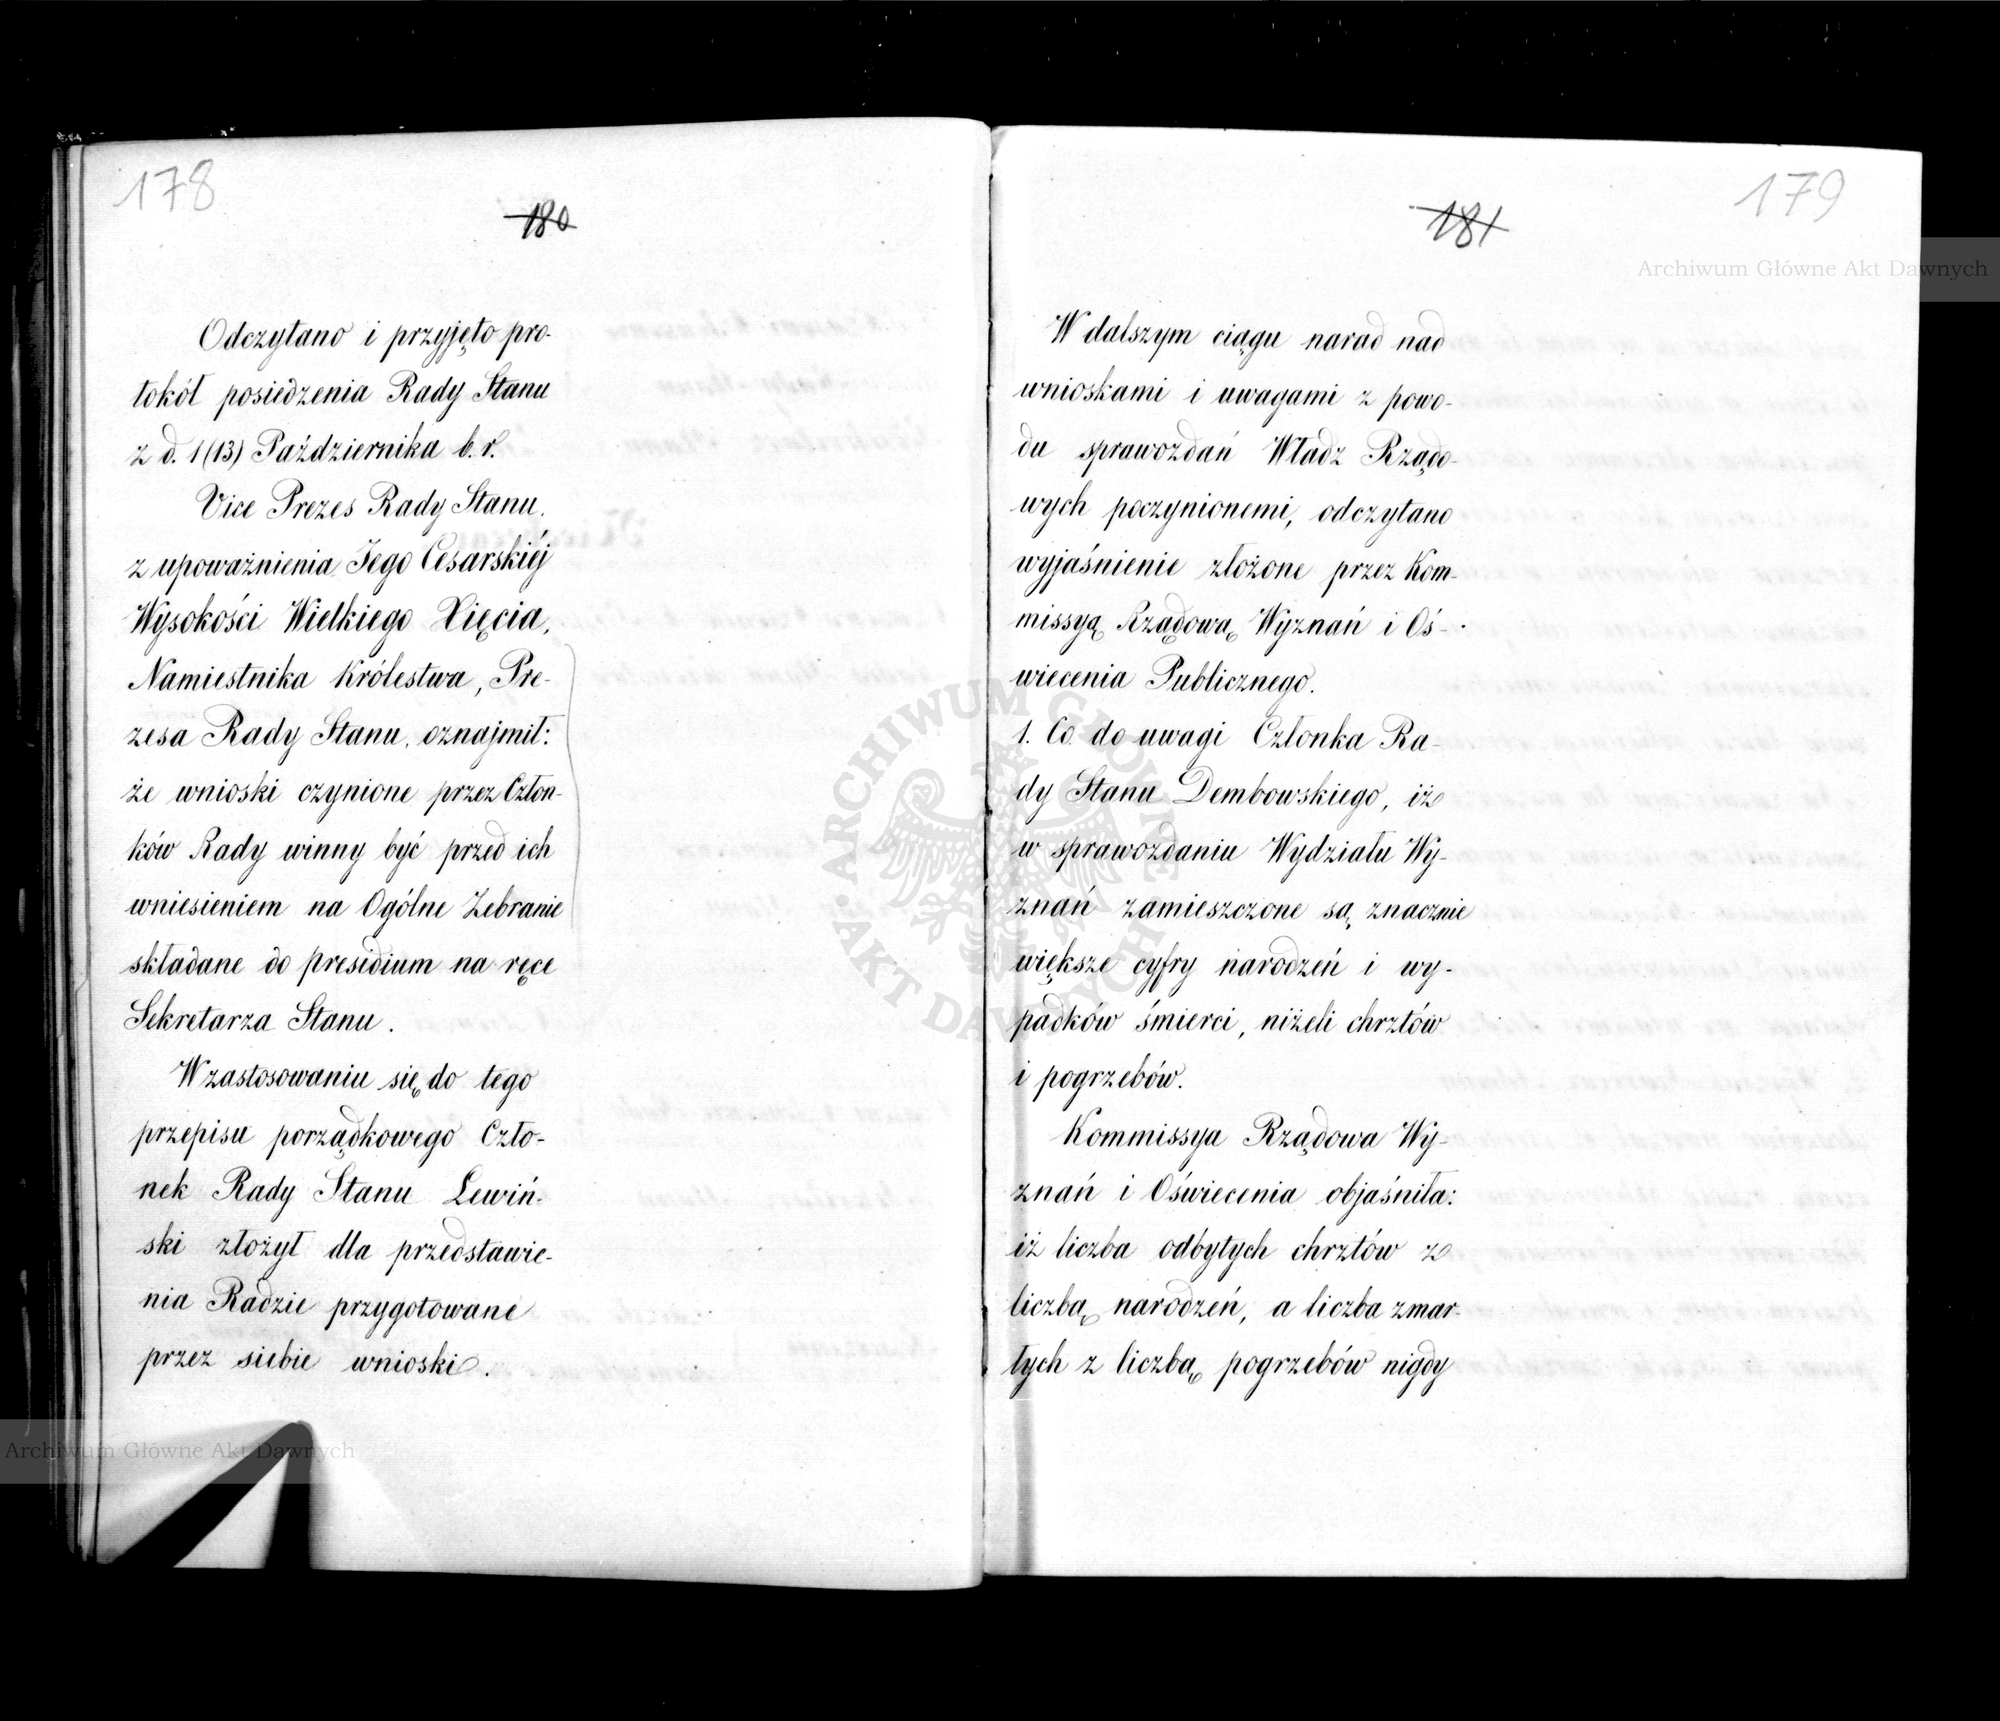 178
180
Odczytano i przyjęto pro-
tokół posiedzenia Rady Stanu
z d. 1 (13) Października b. r.
Vice Prezes Rady Stanu,
z upoważnienia Jego Cesarskiéj
Wysokości Wielkiego Xięcia,
Namiestnika Królestwa, Pre-
zesa Rady Stanu, oznajmił:
że wnioski czynione przez Człon-
ków Rady winny być przed ich
wniesieniem na Ogólne Zebranie
składane do presidium na ręce
Sekretarza Stanu.
W zastosowaniu się do tego
przepisu porządkowego Czło-
nek Rady Stanu Lewiń-
ski złożył dla przedstawie-
nia Radzie przygotowane
przez siebie wnioski.
179
181
Archiwum Główne Akt Dawnych
W dalszym ciągu narad nad
wnioskami i uwagami z powo-
du sprawozdań Władz Rządo-
wych poczynionemi, odczytano
wyjaśnienie złożone przez Kom-
missyą Rządową Wyznań i Oś-
wiecenia Publicznego.
1. Co do uwagi Członka Ra-
dy Stanu Dembowskiego, iż
w sprawozdaniu Wydziału Wy-
znań zamieszczone są znacznie
większe cyfry narodzeń i wy-
padków śmierci, niżeli chrztów
i pogrzebów.
Kommissya Rządowa Wy-
znań i Oświecenia objaśniła:
iż liczba odbytych chrztów z
liczbą narodzeń, a liczba zmar-
łych z liczbą pogrzebów nigdy
ARCHIWUM GŁÓWNE
AKT DAWNYCH
Archiwum Główne Akt Dawnych